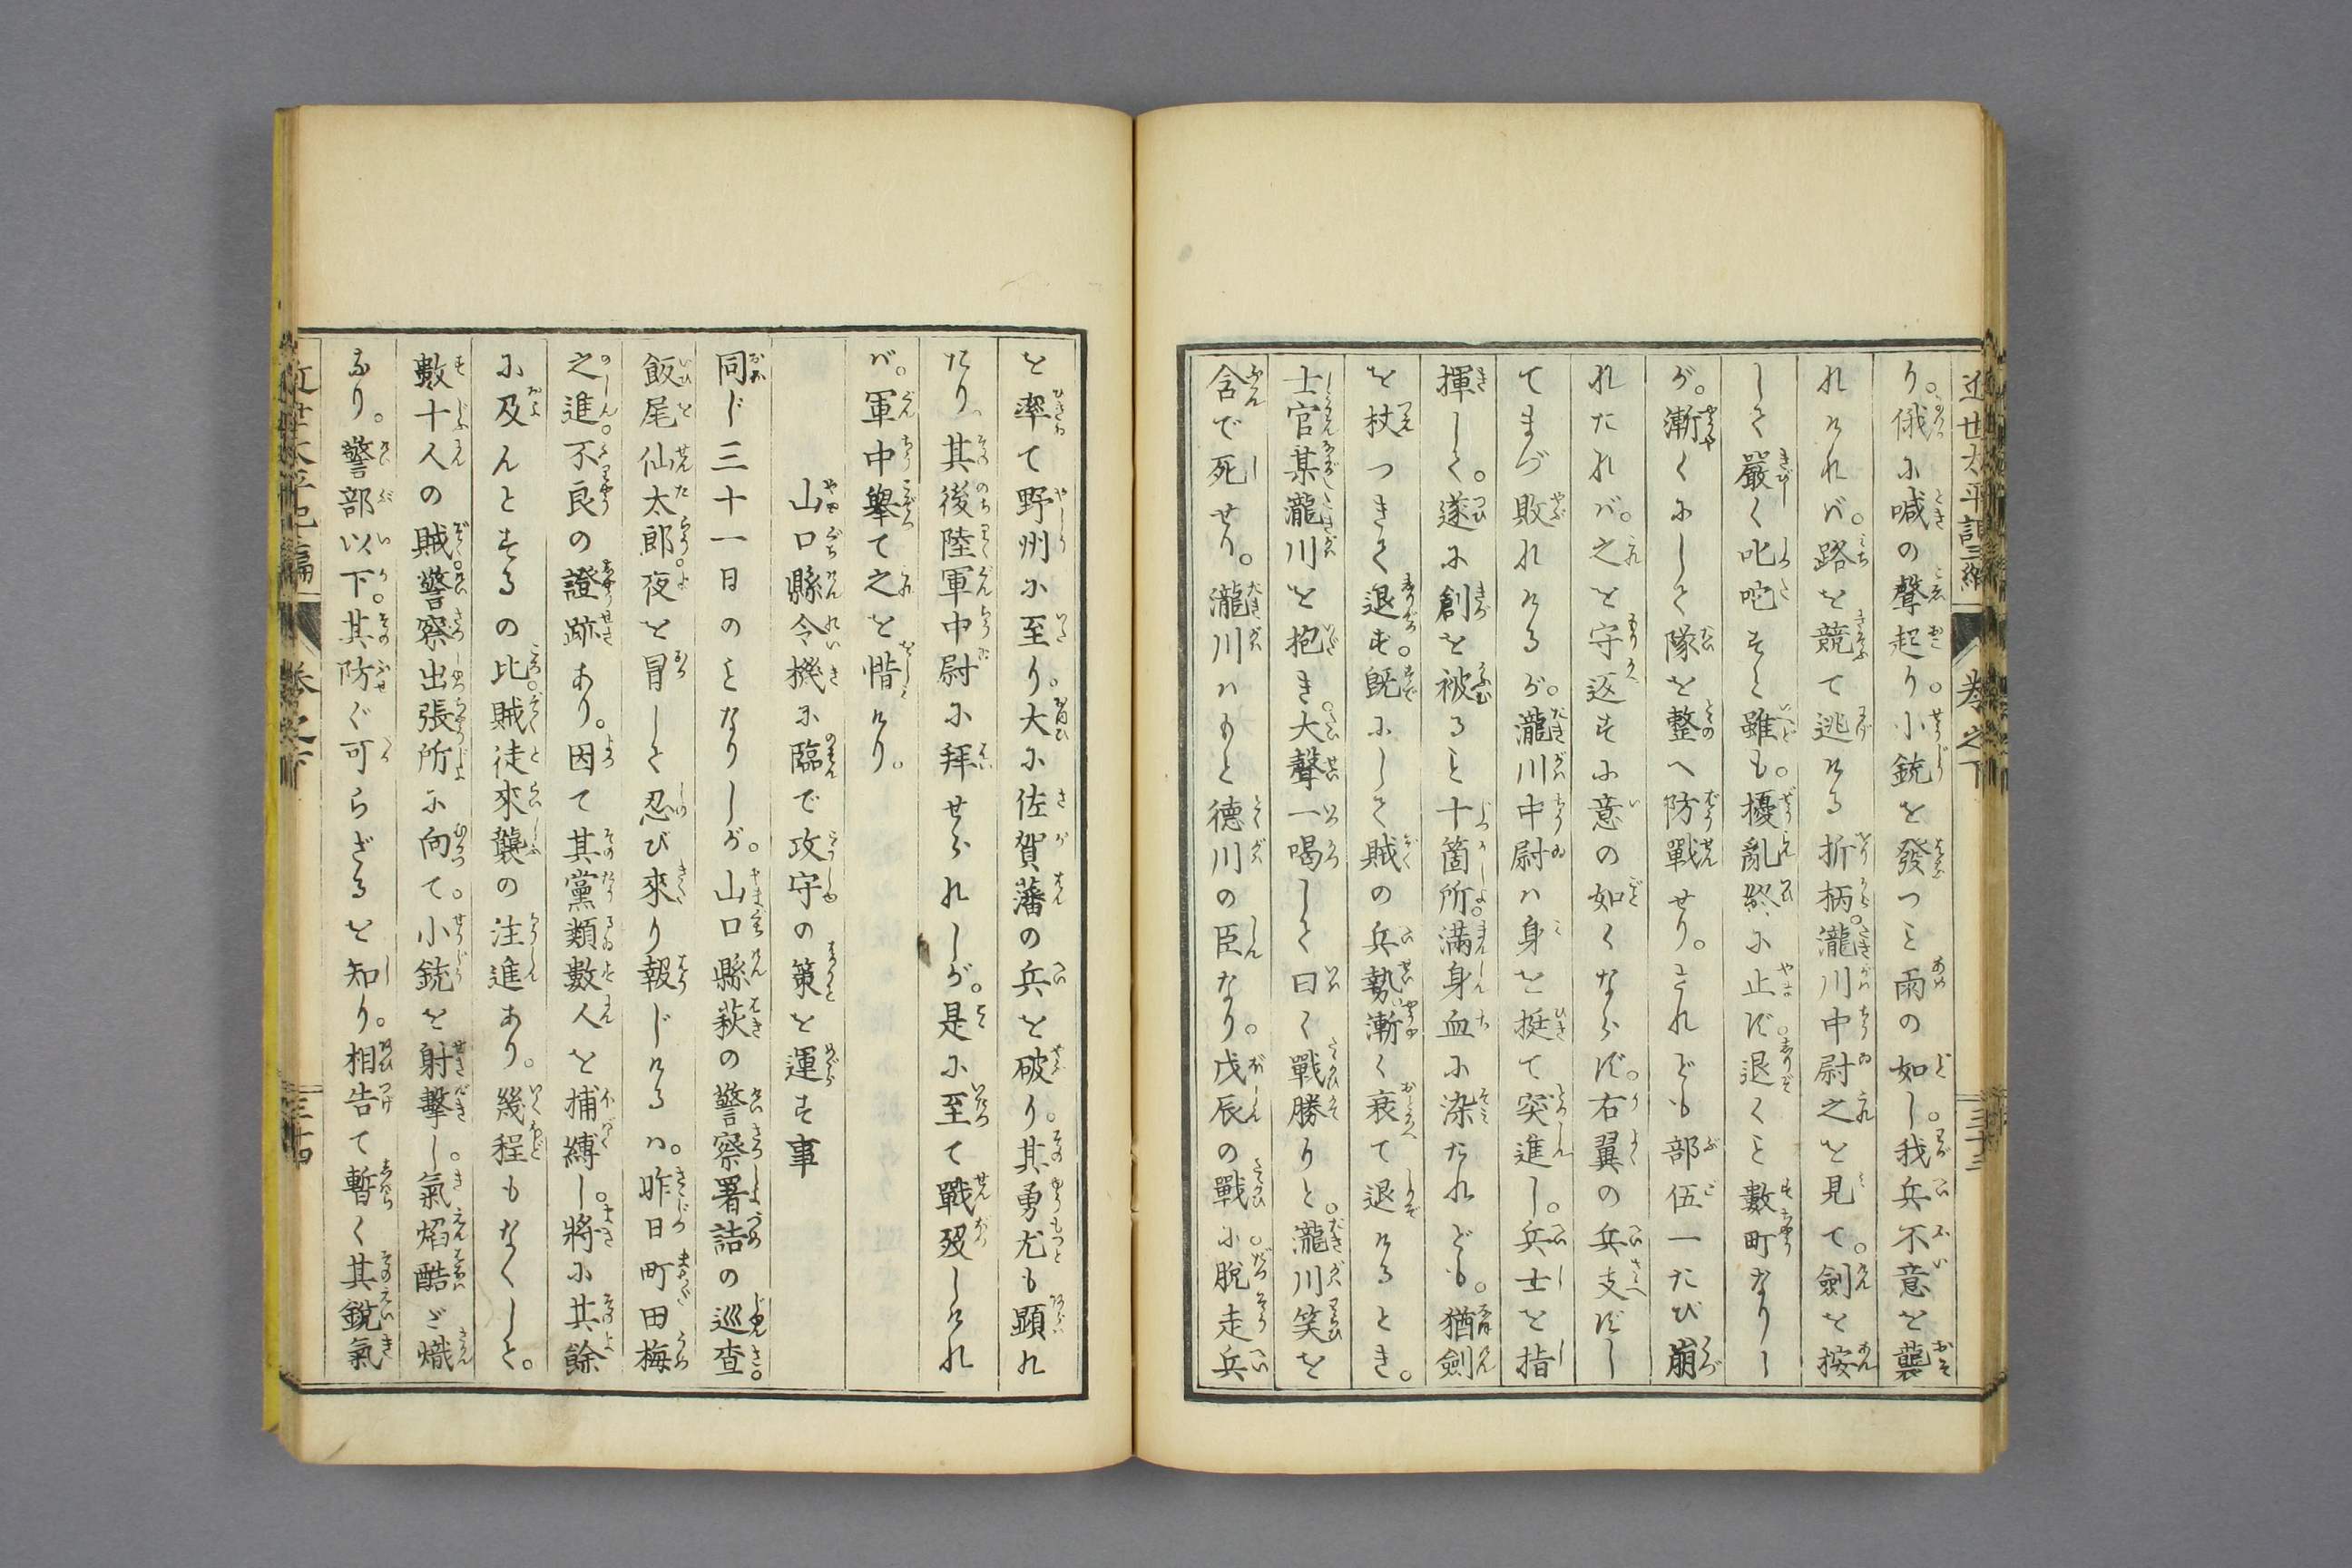 近世太平記三編 巻之下 三十三
り。俄に喊の聲起り。小銃を發つこと雨の如し。我兵不意を襲
れければ。路を競て逃ける折柄。瀧川中尉之を見て。劍を按
して嚴く叱咤すと雖も。擾亂終に止まず退くこと數町なりし
が。漸くにして隊を整へ防戰せり。されども部伍一たび崩
れたれば。之を守返すに意の如くならず。右翼の兵支ずし
てまづ敗れけるが。瀧川中尉は身を挺て突進し。兵士を指
揮して。遂に創を被ること十箇所。滿身血に染たれども。猶劍
を杖つきて退ず。既にして賊の兵勢漸く衰て退けるとき。
士官某瀧川を抱き。大聲一喝して曰く戰勝りと。瀧川笑を
含で死せり。瀧川はもと德川の臣なり。戊辰の戰に。脱走兵
を率て野州に至り。大に佐賀藩の兵を破り。其勇尤も顯れ
たり。其後陸軍中尉に拜せられしが。是に至て戰歿しけれ
ば。軍中擧て之を惜けり。
山口縣令機に臨で攻守の策を運す事
同じ三十一日のことなりしが。山口縣萩の警察署詰の巡査。
飯尾仙太郎。夜を冒して忍び來り報じけるは。昨日町田梅
之進。不良の證跡あり。因て其黨類數人を捕縛し。將に其餘
に及んとするの比。賊徒來襲の注進あり。幾程もなくして。
數十人の賊。警察出張所に向て。小銃を射擊し。氣焰酷だ熾
なり。警部以下。其防ぐ可らざるを知り。相告て暫く其銳氣
近世太平記三編 巻之下 三十四